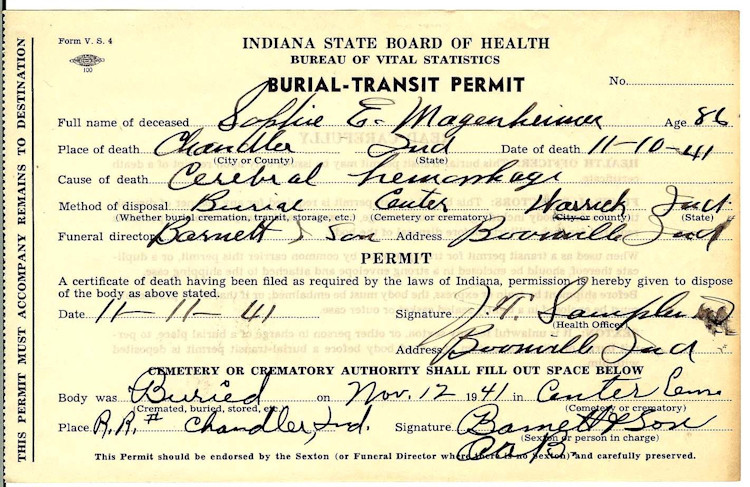 Form V. S. 4
100
INDIANA STATE BOARD OF HEALTH
BUREAU OF VITAL STATISTICS
BURIAL-TRANSIT PERMIT
No.
Full name of deceased Sophie E. Magenheimer Age 86
Place of death Chandler Ind Date of death 11-10-41
(City or County) (State)
Cause of death Cerebral hemorrhage
Method of disposal Burial Center Warrick Ind
(Whether burial cremation, transit, storage, etc.) (Cemetery or crematory) (City or county) (State)
Funeral director Barnett & Son Address Boonville Ind
PERMIT
A certificate of death having been filed as required by the laws of Indiana, permission is hereby given to dispose
of the body as above stated.
Date 11-11-41 Signature
(Health Officer)
Address Boonville Ind
CEMETERY OR CREMATORY AUTHORITY SHALL FILL OUT SPACE BELOW
Body was Buried on Nov. 12 1941 in Center Cem
(Cremated, buried, stored, etc.) (Cemetery or crematory)
Place R.R.# Chandler, Ind. Signature Barnett & Son
(Sexton or person in charge)
This Permit should be endorsed by the Sexton (or Funeral Director where there is no Sexton) and carefully preserved.
THIS PERMIT MUST ACCOMPANY REMAINS TO DESTINATION